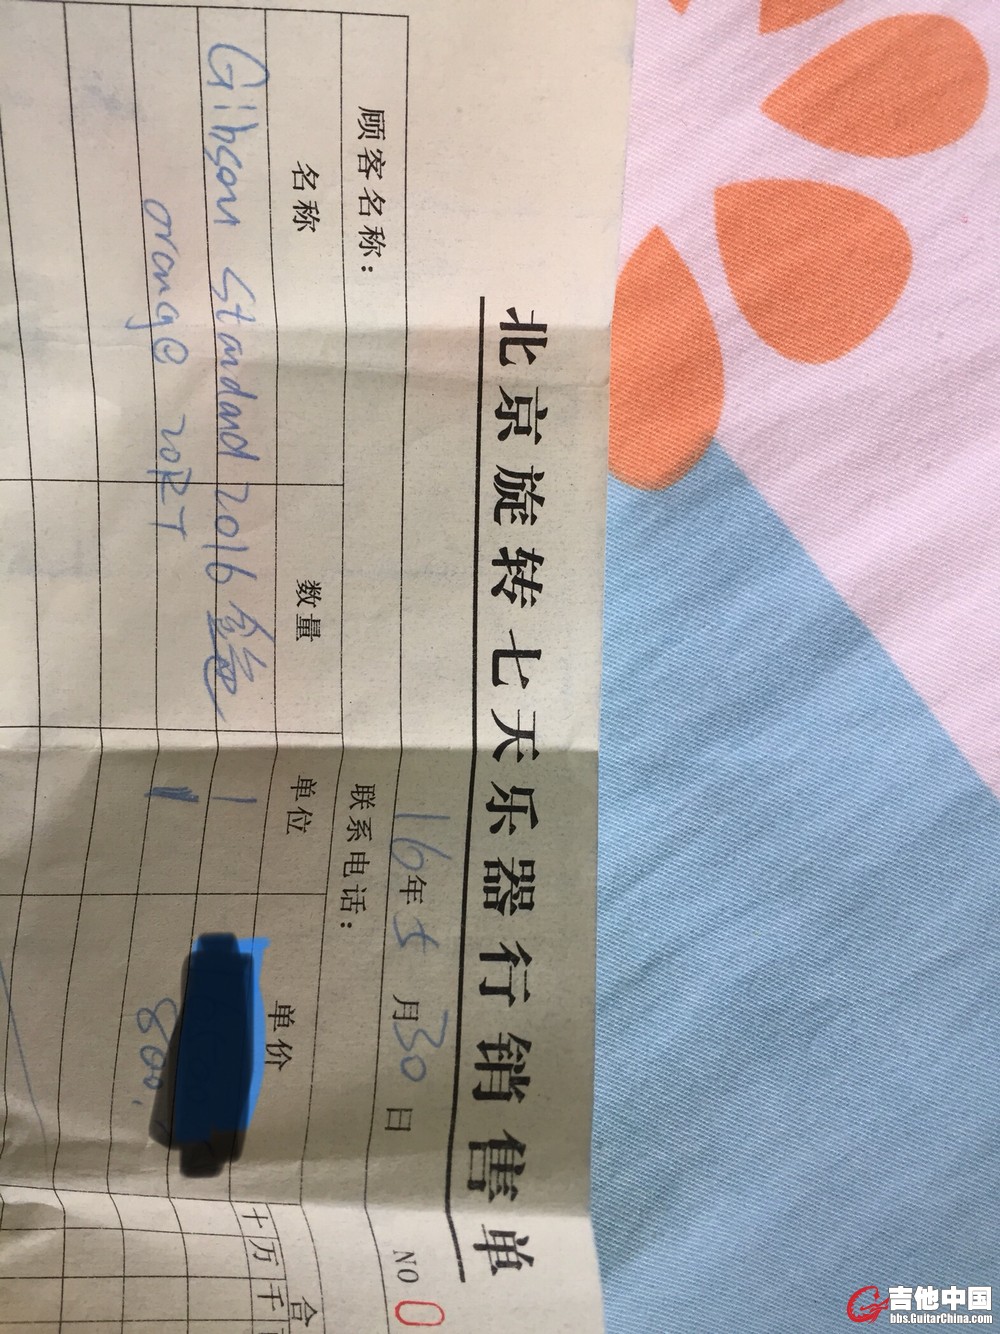 北京旋转七天乐器行销售单
16年5月30日 NO 0
顾客名称： 联系电话：
名称 数量 单位 单价 合
十万千
Gibson Standard 2016 1
orange 20RT 1 800.
吉他中国
bbs.GuitarChina.com